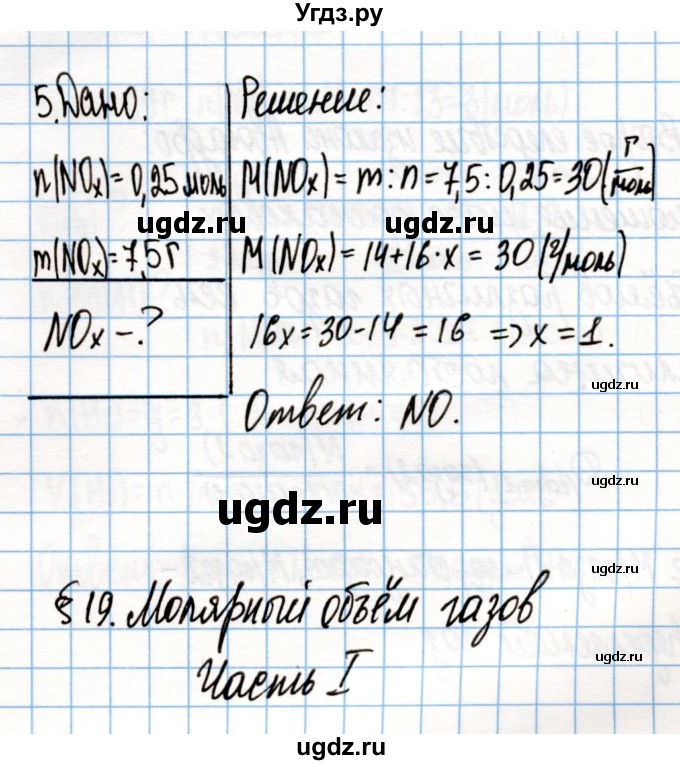 Угдз.ру
5. Дано:
n(NOx) = 0,25 моль
m(NOx) = 7,5 г
NOx - ?
Решение:
M(NOx) = m : n = 7,5 : 0,25 = 30 (г/моль)
M(NOx) = 14 + 16 · x = 30 (г/моль)
16x = 30 - 14 = 16 => x = 1.
Ответ: NO.
ugdz.ru
ugdz.ru
ugdz.ru
ugdz.ru
ugdz.ru
ugdz.ru
§ 19. Молярный объём газов
Часть I
ugdz.ru
ugdz.ru